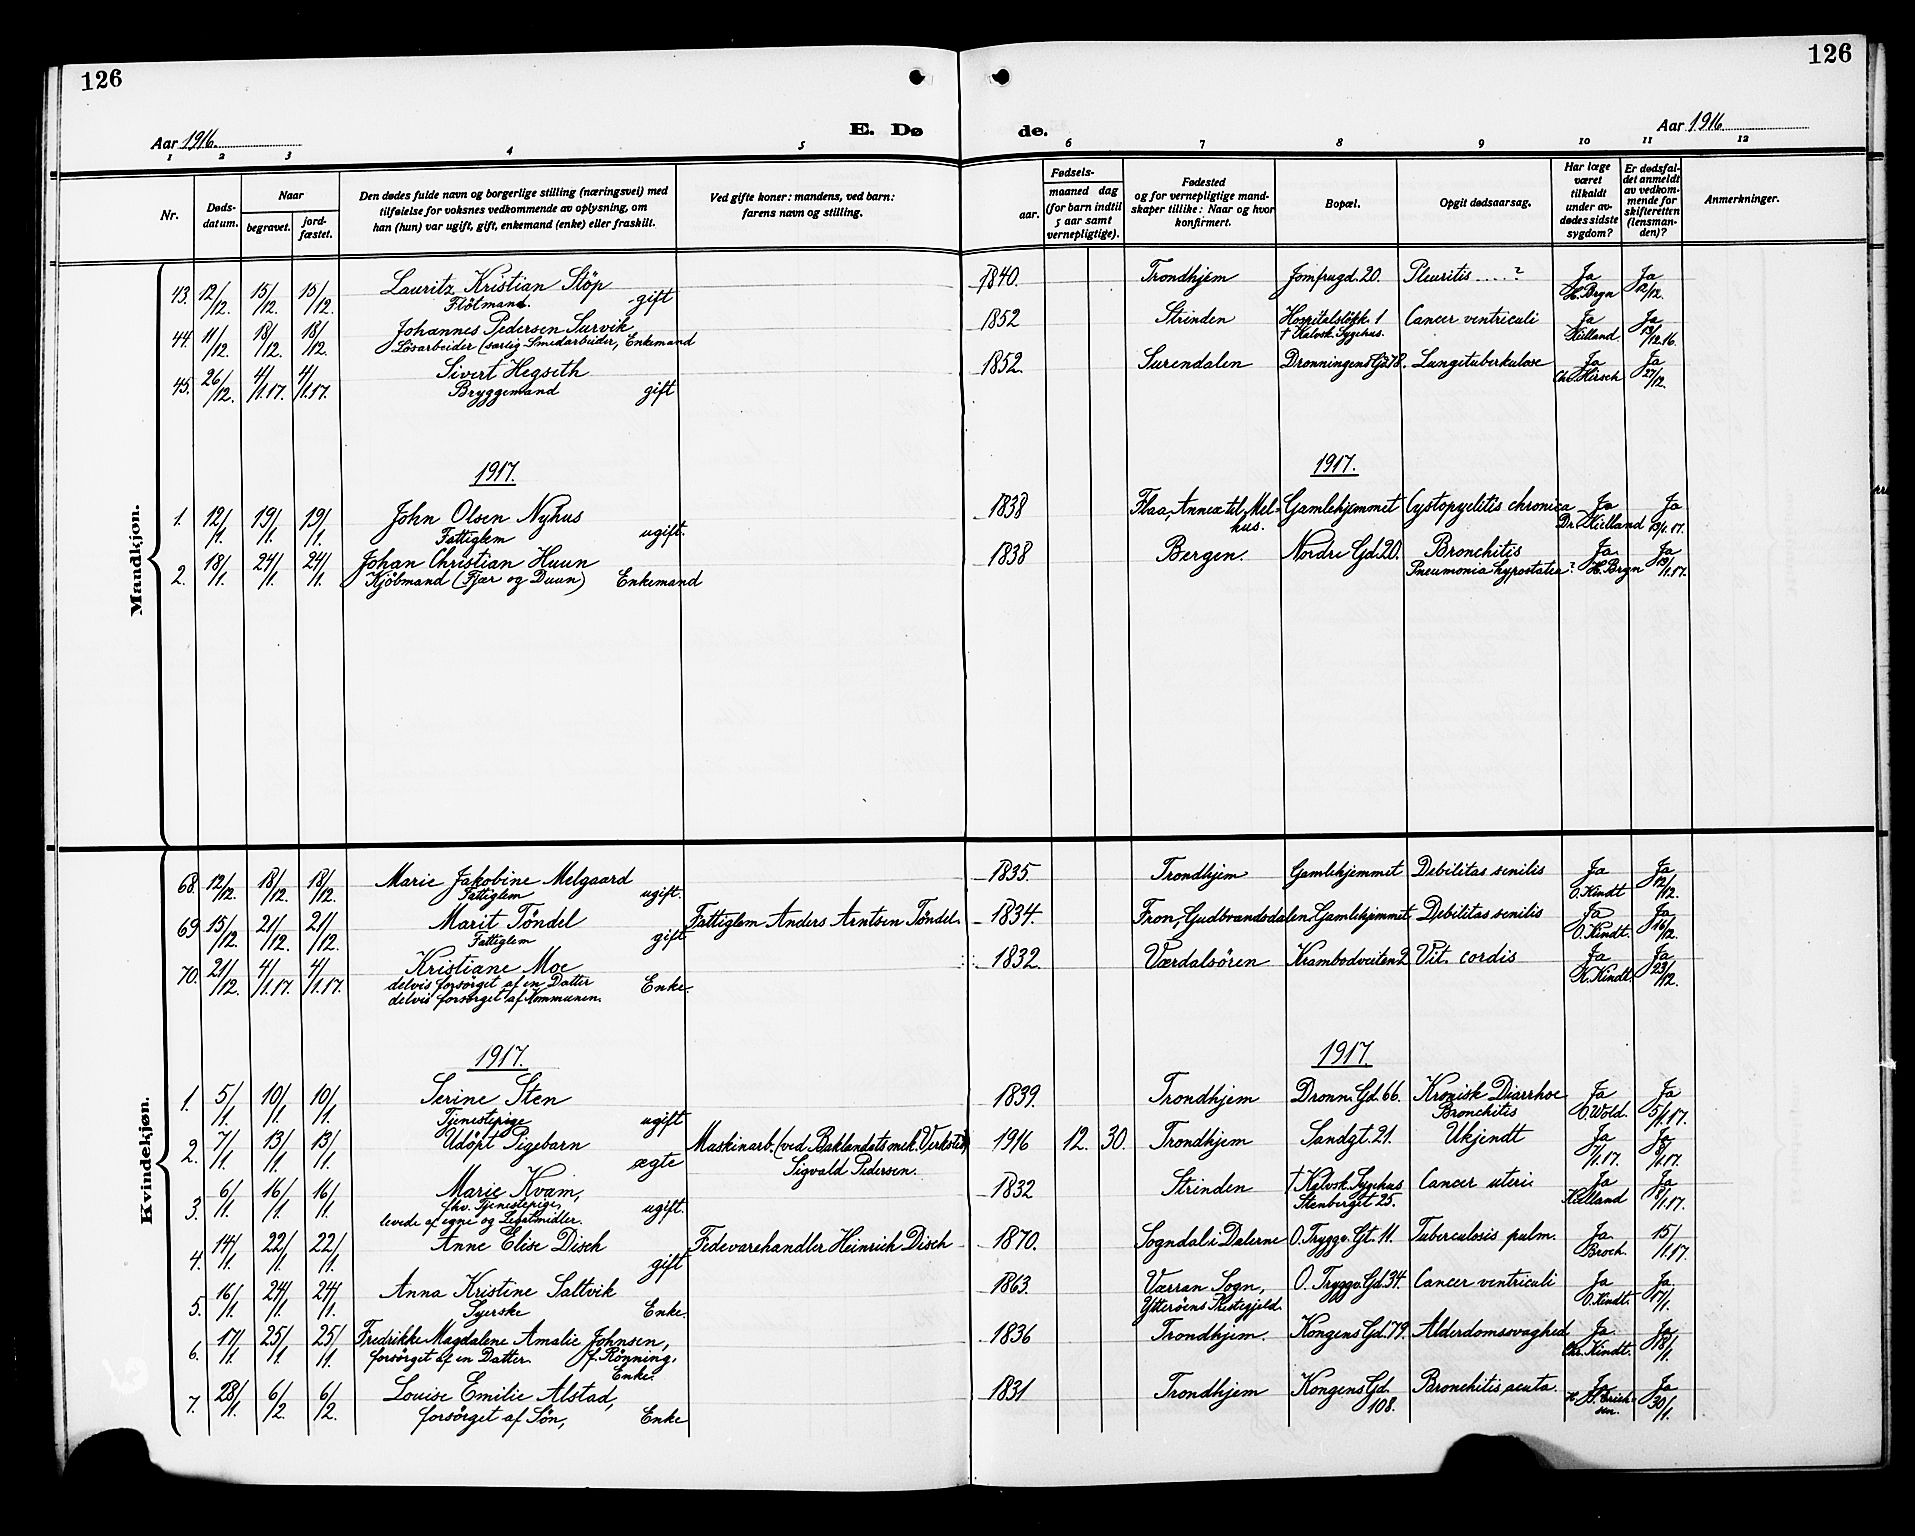 126
126
Aar 1916.
E. Dø
de.
Aar 1916
1 2 3 4 5 6 7 8 9 10 11 12
Nr.
Døds-
datum.
Naar
begravet.
jord-
fæstet.
Den dødes fulde navn og borgerlige stilling (næringsvei) med
tilføielse for voksnes vedkommende av oplysning, om
han (hun) var ugift, gift, enkemand (enke) eller fraskilt.
Ved gifte koner: mandens, ved barn:
farens navn og stilling.
Fødsels-
aar.
maaned dag
(for barn indtil
5 aar samt
vernepligtige).
Fødested
og for vernepligtige mand-
skaper tillike: Naar og hvor
konfirmert.
Bopæl.
Opgit dødsaarsag.
Har læge
været
tilkaldt
under av-
dødes sidste
sygdom?
Er dødsfal-
det anmeldt
av vedkom-
mende for
skifteretten
(lensman-
den)?
Anmerkninger.
Mandkjøn.
43. 12/12. 15/12. 15/12. Lauritz Kristian Stöp 1840. Trondhjem Jomfrugd. 20. Pleuritis ....? Ja Ja
Flötmand. gift H. Bryn 12/12.
44 11/12. 18/12. 18/12. Johannes Pedersen Survik 1852 Strinden Hospitalslökk. 1 Cancer ventriculi Ja Ja
Lösarbeider (særlig Smedarbeider, Enkemand † Kalvsk. Sygehus. Kielland 13/12.16.
45. 26/12. 4/1.17. 4/1.17. Sivert Hegseth 1852. Surendalen Dronningens Gd 78. Lungetuberkulose Ja Ja
Bryggemand gift Chr. Hirsch 27/12.
1917. 1917.
1. 12/1. 19/1. 19/1. John Olsen Nyhus 1838 Flaa, Annex til Mel- Gamlehjemmet Cystopyelitis chronica Ja Ja
Fattiglem ugift. hus. Dr. Kielland 13/1.17.
2. 18/1. 24/1. 24/1. Johan Christian Huun 1838 Bergen. Nordre Gd. 20. Bronchitis Ja Ja
Kjöbmand (Fjær og Duun) Enkemand Pneumonia hypostatica? H. Bryn 19/1.17.
Kvindekjøn.
68. 12/12. 18/12. 18/12. Marie Jakobine Melgaard 1835. Trondhjem Gamlehjemmet Debilitas senilis Ja Ja
Fattiglem ugift. O. Kindt 12/12.
69 15/12. 21/12. 21/12. Marit Töndel Fattiglem Anders Arntsen Töndel. 1834. Fron, Gudbrandsdalen Gamlehjemmet Debilitas senilis Ja Ja
Fattiglem gift O. Kindt. 16/12.
70. 21/12. 4/1.17. 4/1.17. Kristiane Moe 1832. Værdalsören Krambodveiten 2 Vit. cordis Ja Ja
delvis forsörget af en Datter Enke. K. Kindt. 23/12.
delvis forsörget af Kommunen.
1917. 1917.
1. 5/1. 10/1. 10/1. Serine Sten 1839. Trondhjem Dronn. Gd. 66. Kronisk Diarrhoe Ja Ja
Tjenestepige ugift Bronchitis O. Wold. 5/1.17.
2. 7/1. 13/1. 13/1. Udöpt Pigebarn Maskinarb. (ved Baklandets mek. Verksted) 1916 12. 30. Trondhjem Sandgt. 21. Ukjendt Ja Ja
ægte Sigvald Pedersen. 7/1.17. 8/1.17.
3. 6/1. 16/1. 16/1. Marie Kvam, 1832 Strinden † Kalvsk. Sygehus Cancer uteri Ja Ja
fhv. Tjenestepige, ugift. Stenberget 25. Kielland 8/1.17.
levede af egne og Legatmidler.
4. 14/1. 22/1. 22/1. Anne Elise Disch Fedevarehandler Heinrich Disch 1870. Sogndal i Dalerne O. Tryggv. Gt. 11. Tuberculosis pulm. Ja 15/1.17.
gift Broch.
5. 16/1. 24/1. 24/1. Anna Kristine Saltvik 1863. Værran Sogn, O. Tryggv. Gd. 34 Cancer ventriculi Ja Ja
Syerske Enke. Ytteröens Prestegjeld. O. Kindt. 17/1.
6. 17/1. 25/1. 25/1. Fredrikke Magdalene Amalie Johnsen, 1836 Trondhjem. Kongens Gd. 79. Alderdomssvaghed Ja Ja
forsörget af en Datter. f. Rönning, Chr. Kindt. 18/1.
Enke.
7. 28/1. 6/2. 6/2. Louise Emilie Alstad, 1831 Trondhjem Kongens Gd. Bronchitis acuta. Ja Ja
forsörget af Sön, Enke 108. Erich- 30/1.
sen.